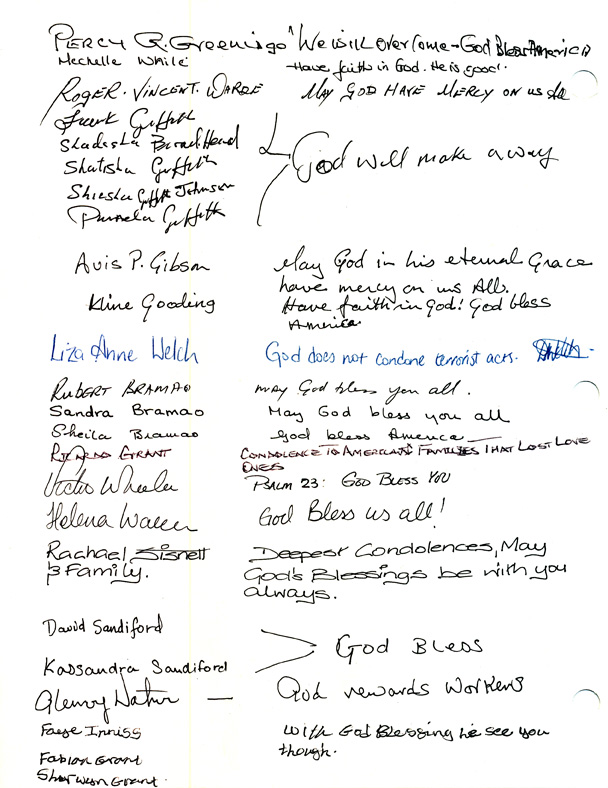 Percy R. Greenisgo "We will Over Come - God Bless America
Mechelle White - Have faith in God. He is good.
Roger. Vincent. Warde May God Have Mercy on us All
Frank Griffith
Shadesha Broadhead
Shatisha Griffith God will make a way
Shiesha Griffith Johnson
Pamela Griffith
Avis P. Gibson May God in his eternal Grace
have mercy on us All.
Kline Gooding Have faith in God! God bless
America
Liza Anne Welch God does not condone terrorist acts.
Rubert Bramao May God bless you all.
Sandra Bramao May God bless you all
Sheila Bramao God bless America
Ricardo Grant Condolence To American Families That Lost Love
Ones
Victor Wheeler Psalm 23: God Bless You
Helena God Bless us all!
Rachael Sisnett Deepest Condolences, May
& Family. God's Blessings be with you
always.
David Sandiford
God Bless
Kassandra Sandiford
— God rewards Workers
Faye Inniss With God Blessing he see you
though.
Fabian Grant
Sherwson Grant.